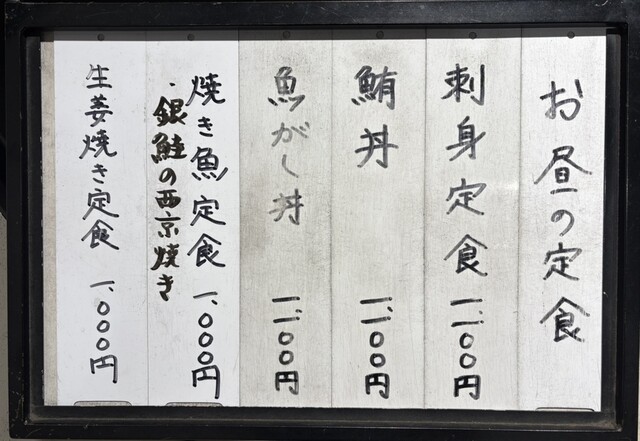 お昼の定食
刺身定食 一、一〇〇円
鮪丼 一、一〇〇円
魚がし丼 一、一〇〇円
焼き魚定食 一、〇〇〇円
・銀鮭の西京焼き
生姜焼き定食 一、〇〇〇円